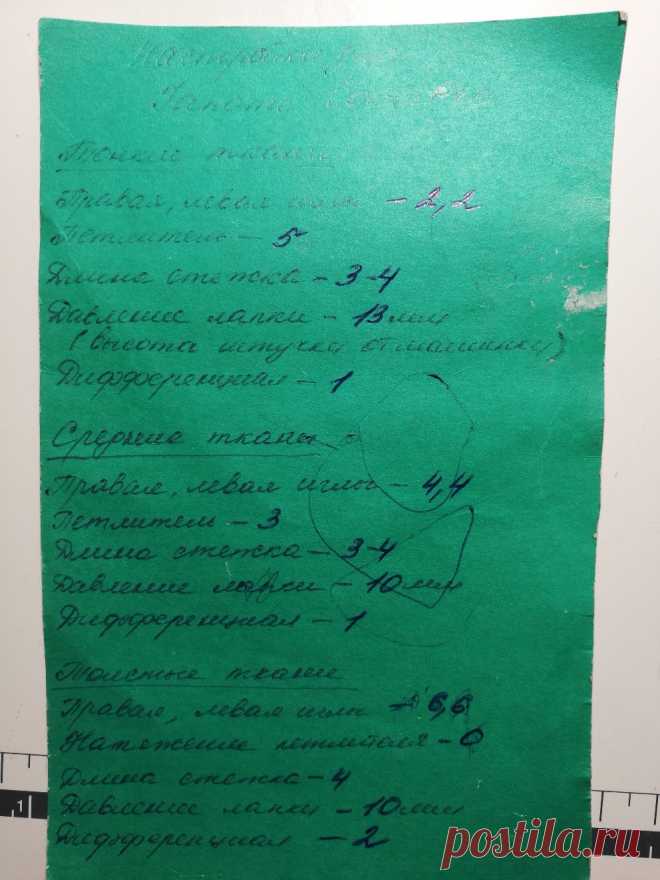 Настройки
Тонкие ткани
Правая, левая иглы - 2,2
Петлитель - 5
Длина стежка - 3-4
Давление лапки - 13 мм
(высота штучки от машинки)
Дифференциал - 1
Средние ткани
Правая, левая иглы - 4,4
Петлитель - 3
Длина стежка - 3-4
Давление лапки - 10 мм
Дифференциал - 1
Толстые ткани
Правая, левая иглы - 6,6
Натяжение петлителя - 0
Длина стежка - 4
Давление лапки - 10 мм
Дифференциал - 2
1
postila.ru